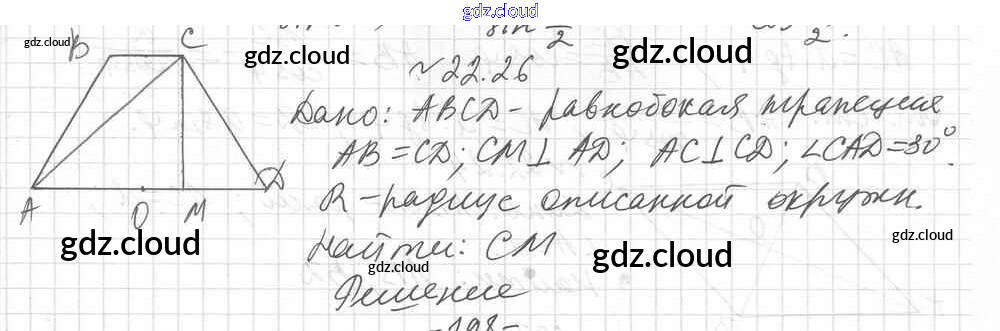 gdz.cloud
sin 2 2.
gdz.cloud B C gdz.cloud gdz.cloud
~ 22.26
Дано: ABCD - равнобокая трапеция
AB = CD; CM ⊥ AD; AC ⊥ CD; ∠CAD = 30°.
A O M D
R - радиус описанной окружн.
gdz.cloud Найти: CM gdz.cloud gdz.cloud
gdz.cloud
Решение
-198-